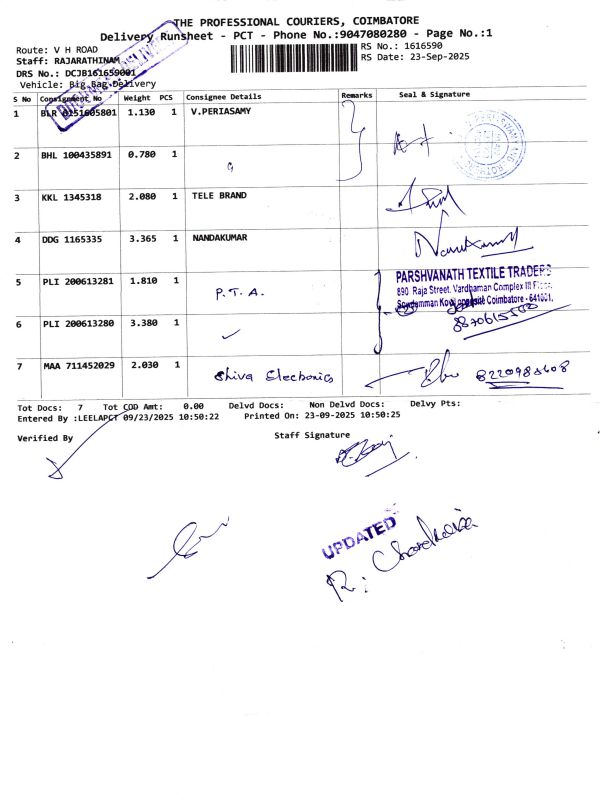 THE PROFESSIONAL COURIERS, COIMBATORE
Delivery Runsheet - PCT - Phone No.:9047080280 - Page No.:1
Route: V H ROAD
RS No.: 1616590
Staff: RAJARATHINAM
RS Date: 23-Sep-2025
DRS No.: DCJB161659001
Vehicle: Big Bag Delivery
S No Consignment No Weight PCS Consignee Details Remarks Seal & Signature
1 BLR 0151605801 1.130 1 V.PERIASAMY
2 BHL 100435891 0.780 1
3 KKL 1345318 2.080 1 TELE BRAND
4 DDG 1165335 3.365 1 NANDAKUMAR
Nandakumar
5 PLI 200613281 1.810 1 P.T.A.
PARSHVANATH TEXTILE TRADERS
890, Raja Street, Vardhaman Complex III Floor,
Coimbatore - 641001.
6 PLI 200613280 3.380 1
7 MAA 711452029 2.030 1 Shiva Electronics
Tot Docs: 7 Tot COD Amt: 0.00 Delvd Docs: Non Delvd Docs: Delvy Pts:
Entered By :LEELAPCT 09/23/2025 10:50:22 Printed On: 23-09-2025 10:50:25
Verified By
Staff Signature
UPDATED